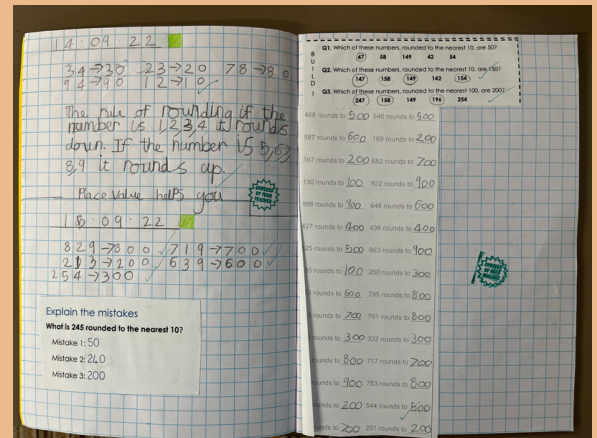 14.09.22
34→30 23→20 78→80
94→90 12→10
The rule of rounding if the
number is 1,2,3,4 it rounds
down. If the number is 5,6,7
8,9 it rounds up.
Place Value helps you
15.09.22
829→800 719→700
213→200 639→600
254→300
Explain the mistakes
What is 245 rounded to the nearest 10?
Mistake 1: 50
Mistake 2: 240
Mistake 3: 200
BUILD
Q1. Which of these numbers, rounded to the nearest 10, are 50?
47 58 149 42 54
Q2. Which of these numbers, rounded to the nearest 10, are 150?
147 158 149 142 154
Q3. Which of these numbers, rounded to the nearest 100, are 200?
247 158 149 196 254
468 rounds to 500 548 rounds to 500
587 rounds to 600 169 rounds to 200
187 rounds to 200 682 rounds to 700
130 rounds to 100 922 rounds to 900
888 rounds to 900 648 rounds to 600
427 rounds to 400 436 rounds to 400
rounds to 500 863 rounds to 900
rounds to 100 250 rounds to 300
rounds to 600 795 rounds to 800
rounds to 700 761 rounds to 800
rounds to 300 332 rounds to 300
rounds to 800 717 rounds to 700
rounds to 900 753 rounds to 800
rounds to 200 544 rounds to 500
rounds to 700 201 rounds to 200